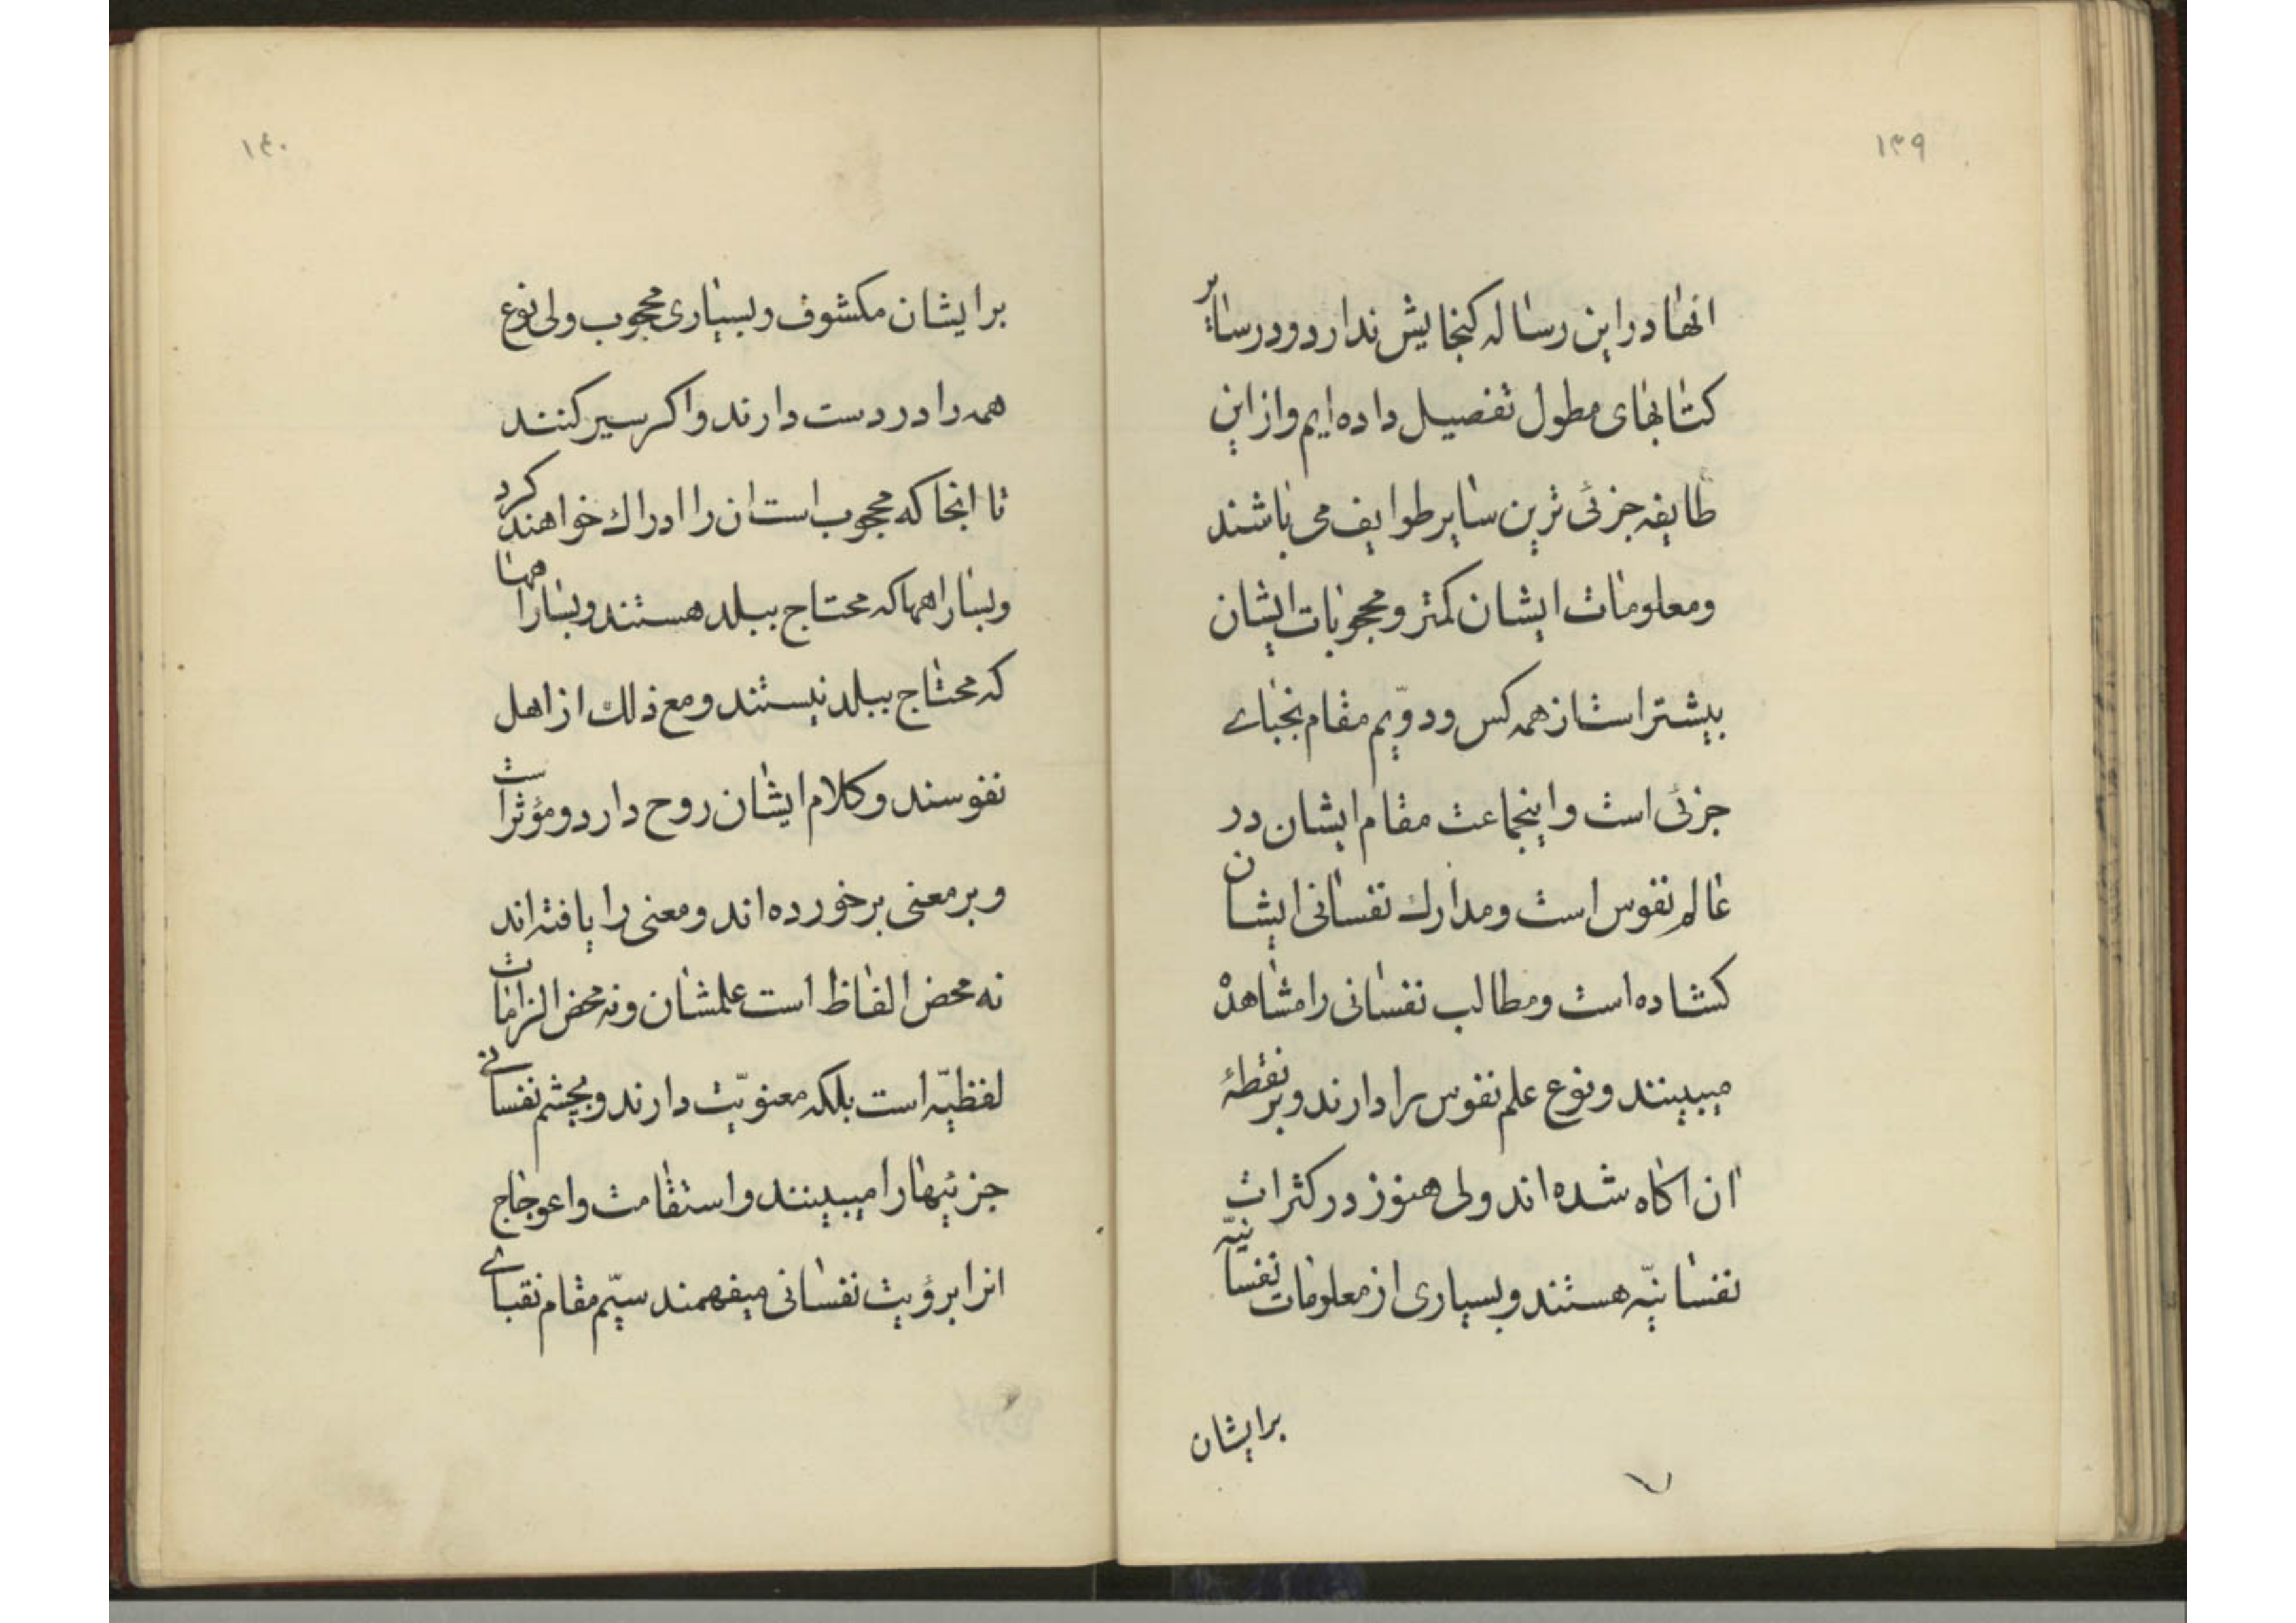 ١٣٩
انها در این رساله کنجایش ندارد و در سایر
کتابهای مطول تفصیل داده‌ایم و از این
طایفه جزئی ترین سایر طوایف می باشند
و معلومات ایشان کمتر و محجوبات ایشان
بیشتر است از همه کس و دویّم مقام نجبای
جزئی است و اینجماعت مقام ایشان در
عالم نفوس است و مدارك نفسانی ایشان
کشاده است و مطالب نفسانی را مشاهده
میبینند و نوع علم نفوس را دارند و بر نقطهٔ
ان اکاه شده اند ولی هنوز در کثرات
نفسانیّه هستند و بسیاری از معلومات نفسانیّه
برایشان
١٤٠
برایشان مکشوف و بسیاری محجوب ولی نوع
همه را در دست دارند و اکر سیر کنند
تا انجا که محجوب است ان را ادراك خواهند کرد
و بسا راهها که محتاج ببلد هستند و بسا راهها
که محتاج ببلد نیستند و مع ذلك از اهل
نفوسند و کلام ایشان روح دارد و مؤثر است
و بر معنی برخورده اند و معنی را یافته اند
نه محض الفاظ است علمشان و نه محض الزامات
لفظیّه است بلکه معنویّت دارند و بچشم نفسانی
جزئیها را میبینند و استقامت و اعوجاج
انرا برؤیت نفسانی میفهمند سیّم مقام نقبای